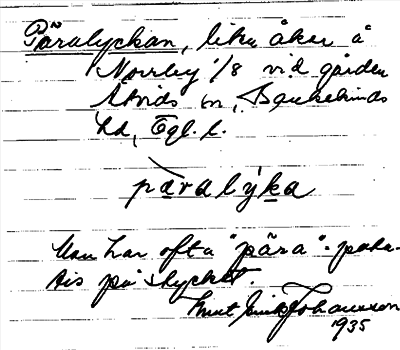 Päralyckan, liten åker å
Norrby 1/8 vid gården
Åtvids sn, Bankekinds
hd, Ögl. l.
päralýka
Man har ofta "pära"- pota-
tis på stycket.
Knut Erik Johansson
1935